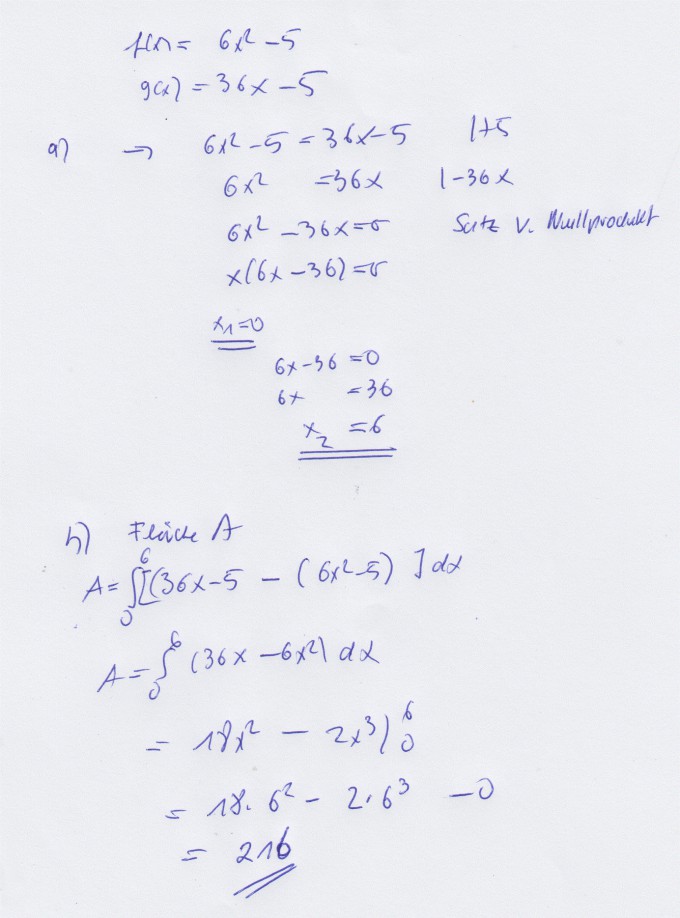 f(x) = 6x² - 5
g(x) = 36x - 5
a) → 6x² - 5 = 36x - 5 |+5
6x² = 36x |-36x
6x² - 36x = 0 Satz v. Nullprodukt
x(6x - 36) = 0
x₁ = 0
6x - 36 = 0
6x = 36
x₂ = 6
b) Fläche A
A = ∫₀⁶ [(36x - 5 - (6x² - 5) ] dx
A = ∫₀⁶ (36x - 6x²) dx
= 18x² - 2x³ )₀⁶
= 18 · 6² - 2 · 6³ - 0
= 216